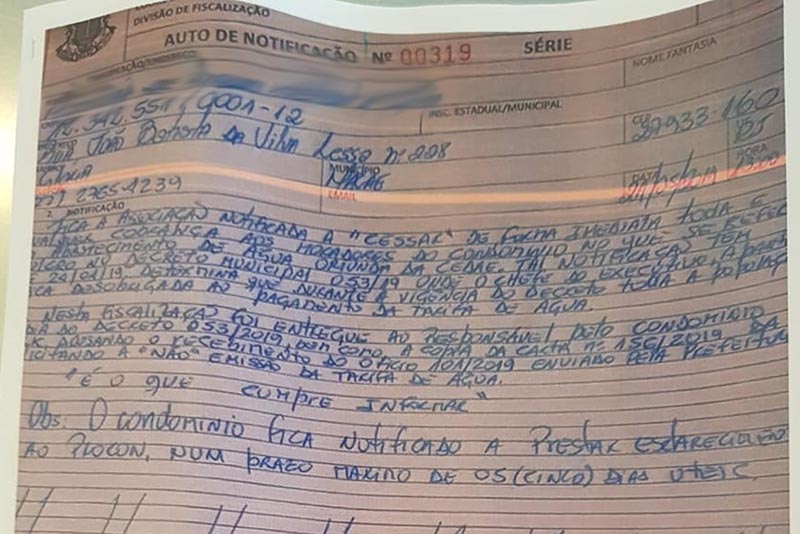 DIVISÃO DE FISCALIZAÇÃO
AUTO DE NOTIFICAÇÃO Nº 00319 SÉRIE
NOME FANTASIA
INSC. ESTADUAL/MUNICIPAL
12.342.551/9001-12
João Batista da Vilma Lessa nº 228
MUNICÍPIO
MACAÉ
DATA
HORA
EMAIL
2765-1239
2. NOTIFICAÇÃO
FICA A ASSOCIAÇÃO NOTIFICADA A "CESSAR" DE FORMA IMEDIATA TODA E
COBRANÇA AOS MORADORES DO CONDOMINIO NO QUE SE REFERE
ABASTECIMENTO DE ÁGUA ORIUNDA DA CEDAE. TAL NOTIFICAÇÃO TEM
NO DECRETO MUNICIPAL 053/19 ONDE O CHEFE DO EXECUTIVO, A
DETERMINA QUE DURANTE A VIGÊNCIA DO DECRETO TODA A POPULAÇÃ
DESOBRIGADA AO PAGAMENTO DA TARIFA DE ÁGUA.
NESTA FISCALIZAÇÃO FOI ENTREGUE AO RESPONSAVEL PELO CONDOMINIO
DO DECRETO 053/2019, BEM COMO, A CÓPIA DA CARTA Nº 156/2019 DA
ACUSANDO O RECEBIMENTO DO OFICIO 101/2019 ENVIADO PELA PREFEITUR
ICITANDO A "NÃO" EMISSÃO DA TARIFA DE ÁGUA.
"É O QUE CUMPRE INFORMAR"
Obs: O CONDOMINIO FICA NOTIFICADO A PRESTAR ESCLARECIMEN
AO PROCON, NUM PRAZO MAXIMO DE 05 (CINCO) DIAS UTEIS.